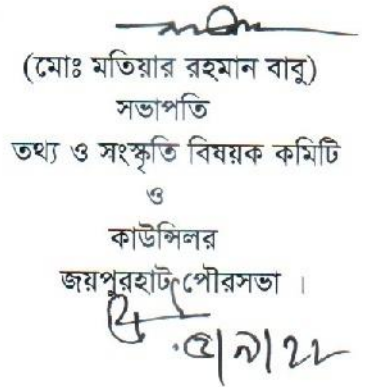 (মোঃ মতিয়ার রহমান বাবু)
সভাপতি
তথ্য ও সংস্কৃতি বিষয়ক কমিটি
ও
কাউন্সিলর
জয়পুরহাট পৌরসভা ।